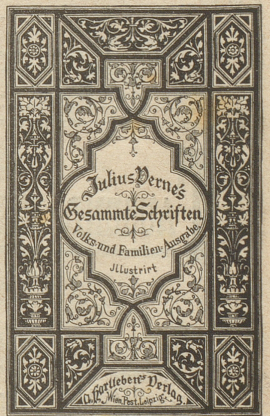 Julius Verne's
Gesammte Schriften
Volks- und Familien-Ausgabe
Illustrirt
A. Hartleben's Verlag.
Wien. Pest. Leipzig.